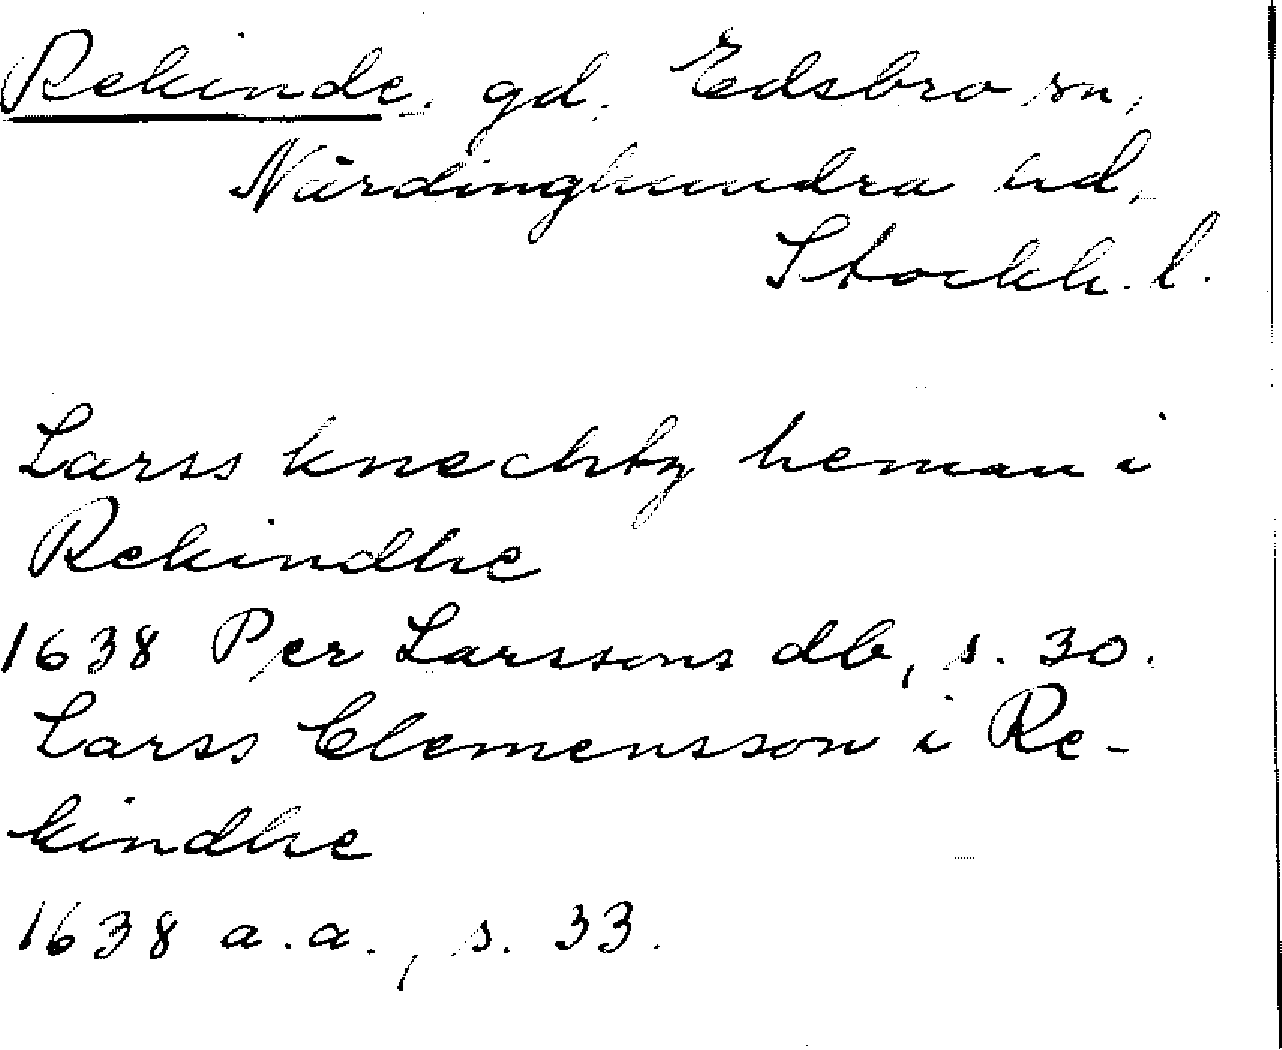 Rekinde. gd. Edsbro sn,
Närdinghundra hd,
Stockh. l.
Larss knechtz heman i
Rekindhe
1638 Per Larssons db, s. 30.
Larss Clemensson i Re-
kindhe
1638 a.a., s. 33.